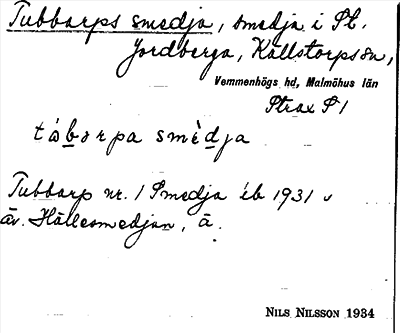 Tubbarps smedja, smedja i St.
Jordberga, Källstorps sn,
Vemmenhögs hd, Malmöhus län
Strax S 1
tåbarpa smèdja
Tubbarp nr. 1 Smedja eb 1931
äv. Hällesmedjan, ä.
NILS NILSSON 1934